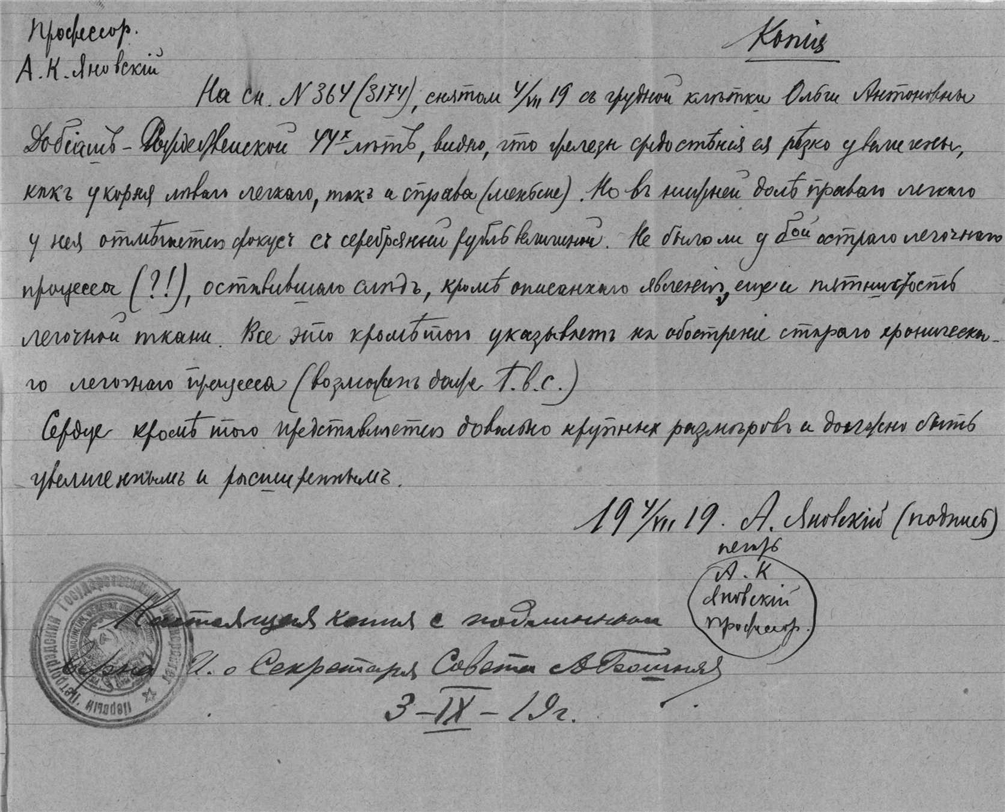 Профессор.
А.К.Яновскій
Копія
На сн. N 364 (3174), снятом 4/VII 19 съ грудной клѣтки Ольги Антоновны
Добіашъ-Рождественской 44х лѣтъ, видно, что железы средостѣнія ея рѣзко увеличены,
какъ у корня лѣваго легкаго, такъ и справа (меньше). Но въ нижней долѣ праваго легкаго
у нея отмѣчается фокусъ съ серебрянный рубль величиной. Не было ли у бой остраго легочнаго
процесса (?!), оставившаго слѣдъ, кромѣ описаннаго явленія, еще и пятнистость
легочной ткани. Все это кромѣ того указываетъ на обостреніе стараго хроническа-
го легочнаго процесса (возможенъ даже t.b.c.)
Сердце кромѣ того представляется довольно крупныхъ размѣровъ и должно быть
увеличеннымъ и расширеннымъ.
19 4/VII 19. А. Яновскій (подпись)
печать
А.К
Яновскій
Профессор.
Настоящая копия с подлинным
верна И.о Секретаря Совета
3-IX-19г.
Первый Петроградский Государственный Университет